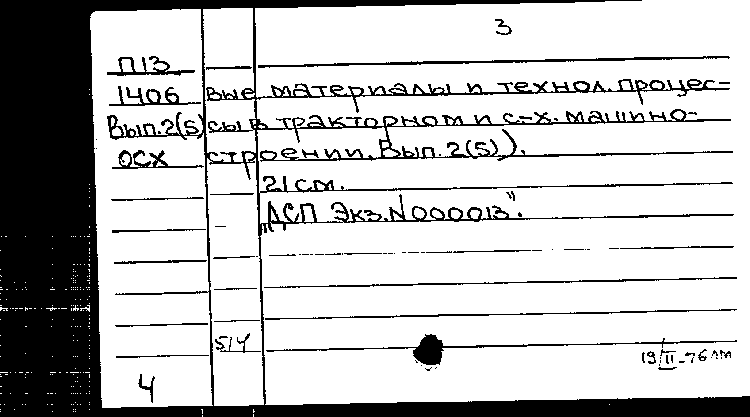 3
П13
1406 вые материалы и технол. процес-
Вып.2(5) сы в тракторном и с-х. машино-
ОСХ строении. Вып. 2(5)).
21 см.
„ДСП Экз. N000013".
514
19/II-76
4